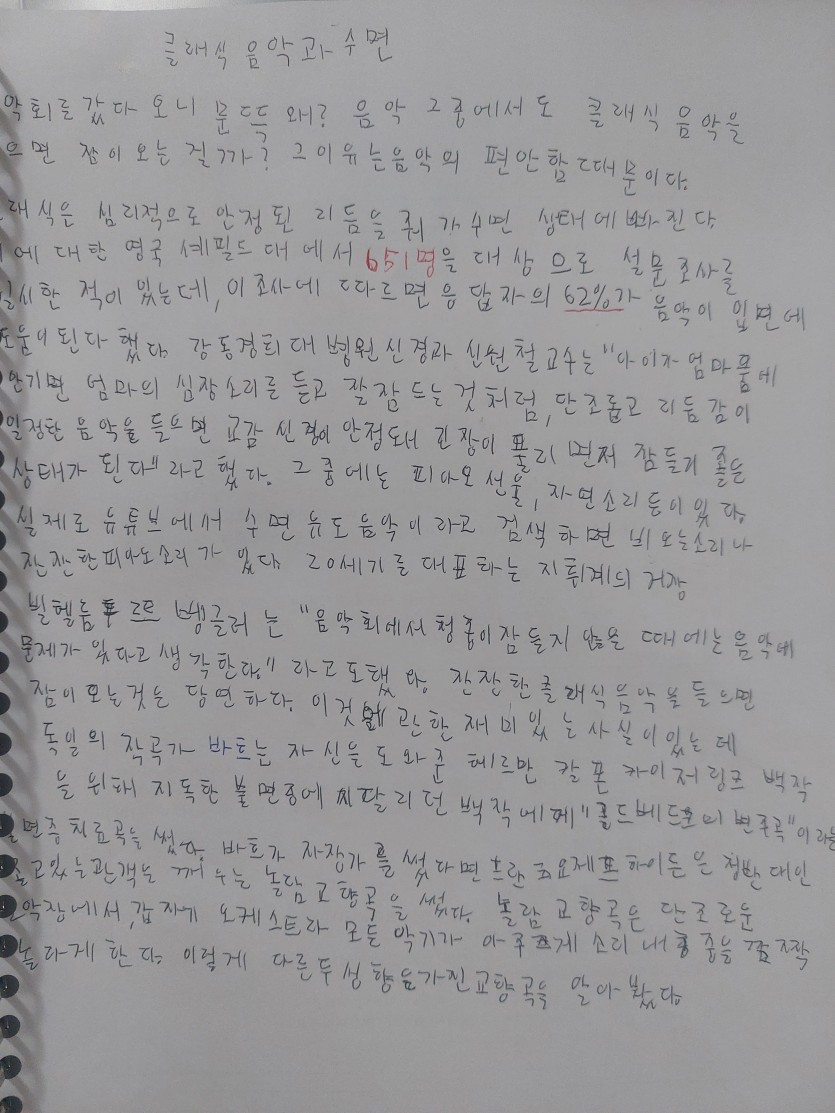 클래식 음악과 수면
악회를 갔다 오니 문득 왜? 음악 그중에서도 클래식 음악을
으면 잠이 오는 걸까? 그 이유는 음악의 편안함 때문이다.
래식은 심리적으로 안정된 리듬을 줘 가수면 상태에 빠진다.
에 대한 영국 셰필드대에서 651명을 대상으로 설문조사를
실시한 적이 있는데, 이 조사에 따르면 응답자의 62%가 음악이 입면에
도움이 된다 했다. 강동경희대병원 신경과 신원철 교수는 "아이가 엄마 품에
안기면 엄마의 심장소리를 듣고 잘 잠드는 것처럼, 단조롭고 리듬감이
일정한 음악을 들으면 교감 신경이 안정돼서 긴장이 풀리면서 잠들기 좋은
상태가 된다" 라고 했다. 그 중에는 피아노 선율, 자연소리 등이 있다.
실제로 유튜브에서 수면 유도 음악이라고 검색하면 비오는소리나
잔잔한 피아노소리가 있다. 20세기를 대표하는 지휘계의 거장
빌헬름 푸르트 뱅글러는 "음악회에서 청중이 잠들지 않을 때에는 음악에
문제가 있다고 생각한다." 라고도 했다. 잔잔한 클래식 음악을 들으면
잠이 오는것은 당연하다. 이것에 관한 재미있는 사실이 있는데
독일의 작곡가 바흐는 자신을 도와준 헤르만 칼 폰 카이저링크 백작
을 위해 지독한 불면증에 시달리던 백작에게 "골드베르크의 변주곡"이라는
불면증 치료곡을 썼다. 바흐가 자장가를 썼다면 프란츠 요제프 하이든은 정반대인
졸고있는 관객을 깨우는 놀람 교향곡을 썼다. 놀람 교향곡은 단조로운
악장에서, 갑자기 오케스트라 모든 악기가 아주 크게 소리 내 청중을 깜짝
놀라게 한다. 이렇게 다른 두 성향을 가진 교향곡을 알아봤다.